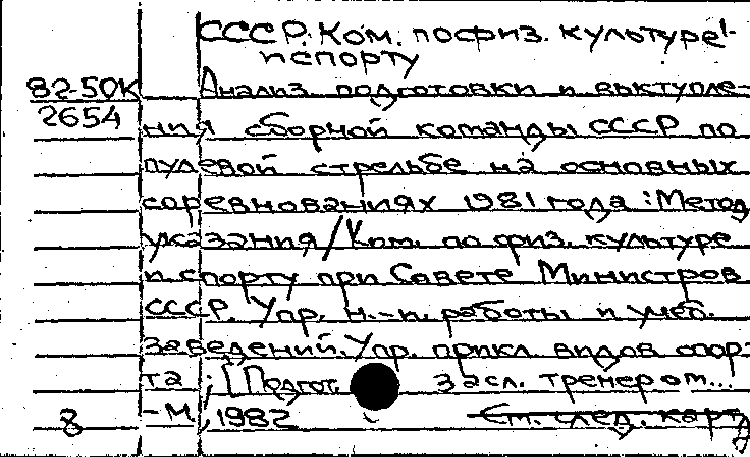 СССР. Ком. по физ. культуре и
спорту
82-50К Анализ подготовки и выступле-
2654 ния сборной команды СССР по
пулевой стрельбе на основных
соревнованиях 1981 года : Метод.
указания / Ком. по физ. культуре
и спорту при Совете Министров
СССР. Упр. н.-и. работы и учеб.
заведений. Упр. прикл. видов спор-
та ; [Подгот. засл. тренером...
8 - М., 1982 См. след. карт